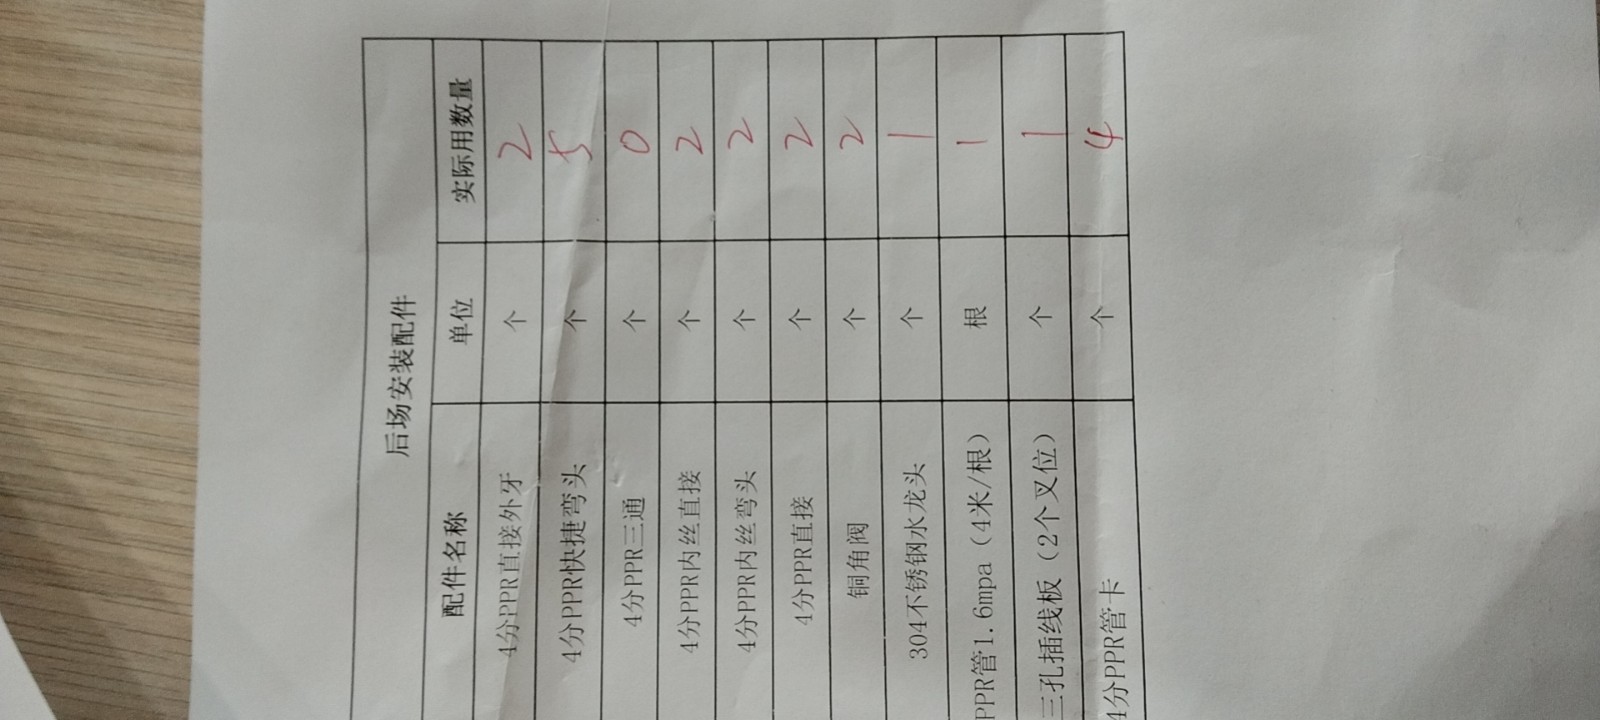 后场安装配件
配件名称 单位 实际用数量
4分PPR直接外牙 个 2
4分PPR快捷弯头 个 5
4分PPR三通 个 0
4分PPR内丝直接 个 2
4分PPR内丝弯头 个 2
4分PPR直接 个 2
铜角阀 个 2
304不锈钢水龙头 个 1
PPR管1.6mpa（4米/根） 根 1
三孔插线板（2个叉位） 个 1
4分PPR管卡 个 4